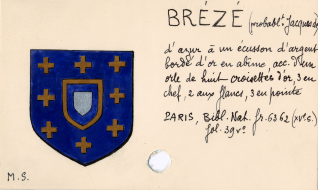 BRÉZÉ (probablt. Jacques de
d'azur à un écusson d'argent
bordé d'or en abîme, acc. d'une
orle de huit croisettes d'or, 3 en
chef, 2 aux flancs, 3 en pointe
PARIS, Bibl. Nat. fr. 6362 (XVe s.)
fol. 39 vo.
M.S.